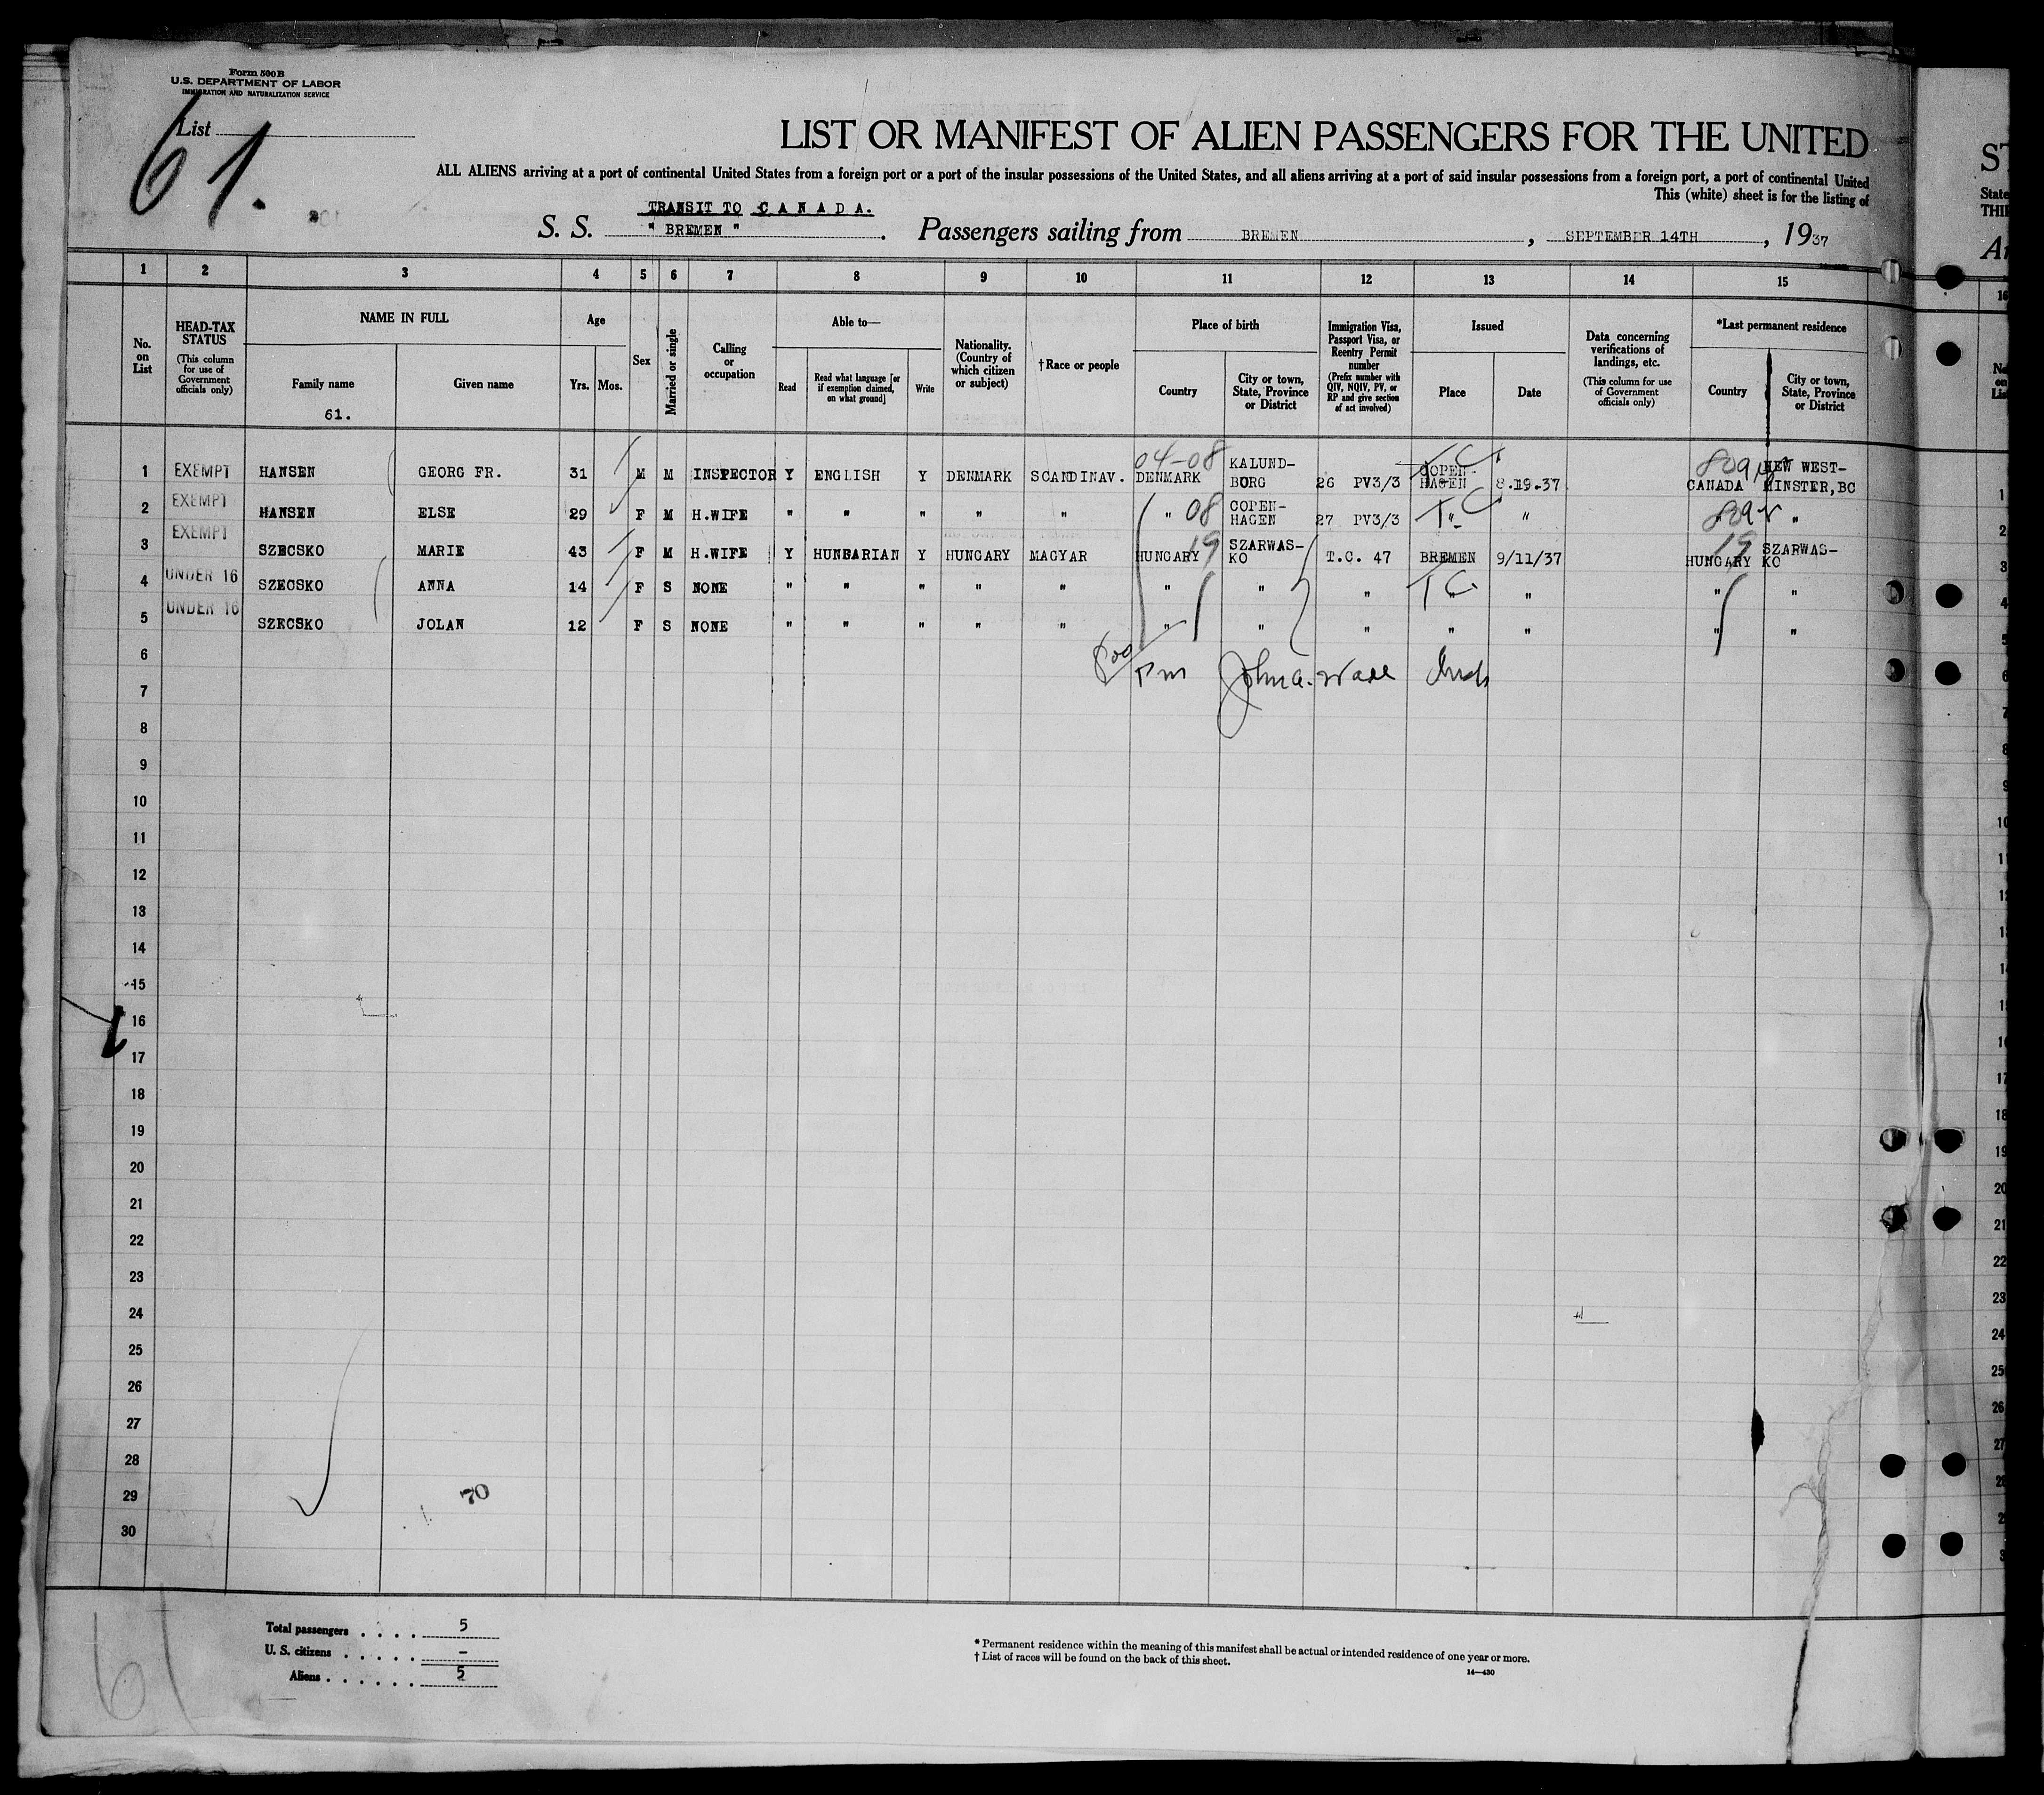 Form 500 B
U.S. DEPARTMENT OF LABOR
IMMIGRATION AND NATURALIZATION SERVICE
List
61.
LIST OR MANIFEST OF ALIEN PASSENGERS FOR THE UNITED
ST
ALL ALIENS arriving at a port of continental United States from a foreign port or a port of the insular possessions of the United States, and all aliens arriving at a port of said insular possessions from a foreign port, a port of continental United
State
This (white) sheet is for the listing of
THI
TRANSIT TO C A N A D A.
S. S. " BREMEN ". Passengers sailing from BREMEN, SEPTEMBER 14TH, 1937
1 2 3 4 5 6 7 8 9 10 11 12 13 14 15 16
No. on List
HEAD-TAX STATUS
(This column for use of Government officials only)
NAME IN FULL
Family name
61.
Given name
Age
Yrs. Mos.
Sex
Married or single
Calling or occupation
Able to—
Read
Read what language [or if exemption claimed, on what ground]
Write
Nationality. (Country of which citizen or subject)
†Race or people
Place of birth
Country
City or town, State, Province or District
Immigration Visa, Passport Visa, or Reentry Permit number
(Prefix number with QIV, NQIV, PV, or RP and give section of act involved)
Issued
Place
Date
Data concerning verifications of landings, etc.
(This column for use of Government officials only)
*Last permanent residence
Country
City or town, State, Province or District
04-08 KALUND- T C COPEN- 809 NEW WEST-
1 EXEMPT HANSEN GEORG FR. 31 M M INSPECTOR Y ENGLISH Y DENMARK SCANDINAV. DENMARK BORG 26 PV3/3 HAGEN 8.19.37 CANADA MINSTER,BC
2 EXEMPT HANSEN ELSE 29 F M H.WIFE " " " " " " 08 COPEN-HAGEN 27 PV3/3 " " 809 " "
3 EXEMPT SZECSKO MARIE 43 F M H.WIFE Y HUNBARIAN Y HUNGARY MAGYAR HUNGARY 19 SZARWAS-KO T.C. 47 BREMEN 9/11/37 19 HUNGARY SZARWAS-KO
4 UNDER 16 SZECSKO ANNA 14 F S NONE " " " " " " " " T C " " " "
5 UNDER 16 SZECSKO JOLAN 12 F S NONE " " " " " " " " " " " "
6
800 pm John A.
7
8
9
10
11
12
13
14
15
16
17
18
19
20
21
22
23
24
25
26
27
28
29
70
30
Total passengers . . . . 5
U. S. citizens . . . . . –
Aliens . . . . . . 5
61
* Permanent residence within the meaning of this manifest shall be actual or intended residence of one year or more.
† List of races will be found on the back of this sheet.
14—430